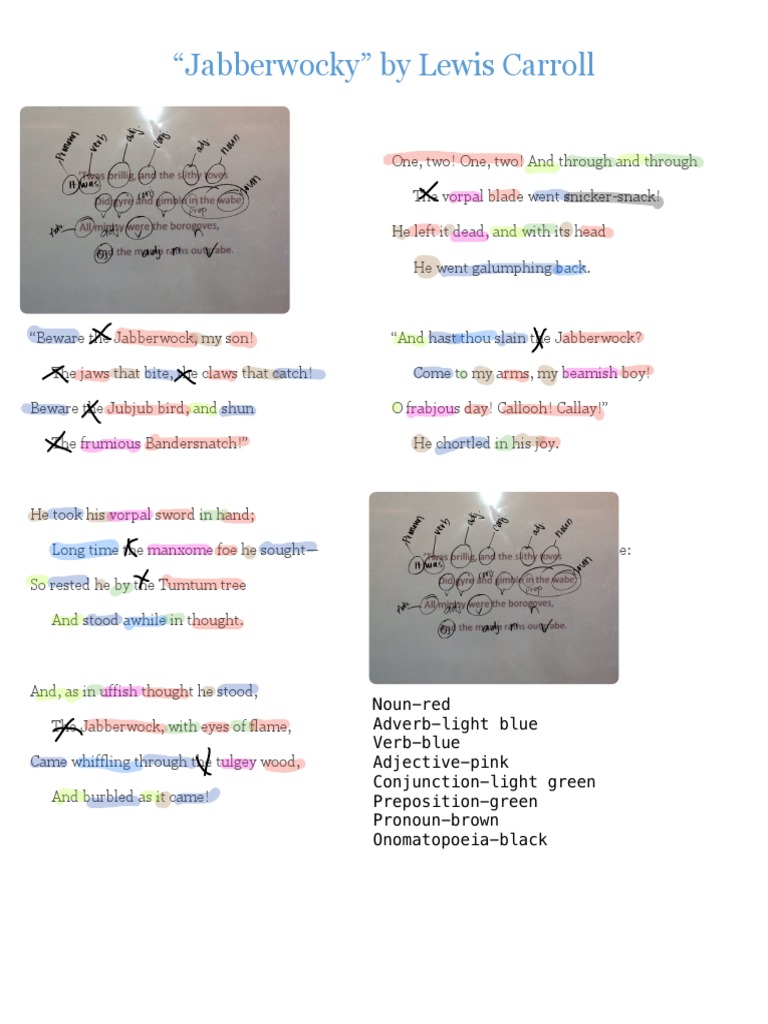 “Jabberwocky” by Lewis Carroll
Pronoun verb adj. conj adj. noun
It was
'Twas brillig, and the slithy toves
Did gyre and gimble in the wabe
conj prep noun
All mimsy were the borogoves,
adj. V n
And the raths outgrabe.
adj n V
“Beware the Jabberwock, my son!
The jaws that bite, the claws that catch!
Beware the Jubjub bird, and shun
The frumious Bandersnatch!”
He took his vorpal sword in hand;
Long time the manxome foe he sought—
So rested he by the Tumtum tree
And stood awhile in thought.
And, as in uffish thought he stood,
The Jabberwock, with eyes of flame,
Came whiffling through the tulgey wood,
And burbled as it came!
One, two! One, two! And through and through
The vorpal blade went snicker-snack!
He left it dead, and with its head
He went galumphing back.
“And hast thou slain the Jabberwock?
Come to my arms, my beamish boy!
O frabjous day! Callooh! Callay!”
He chortled in his joy.
Pronoun verb adj. conj adj noun
It was
'Twas brillig, and the slithy toves
e:
Did gyre and gimble in the wabe
conj prep noun
All mimsy were the borogoves,
adj. V n
And the raths outgrabe.
adj n V
Noun-red
Adverb-light blue
Verb-blue
Adjective-pink
Conjunction-light green
Preposition-green
Pronoun-brown
Onomatopoeia-black